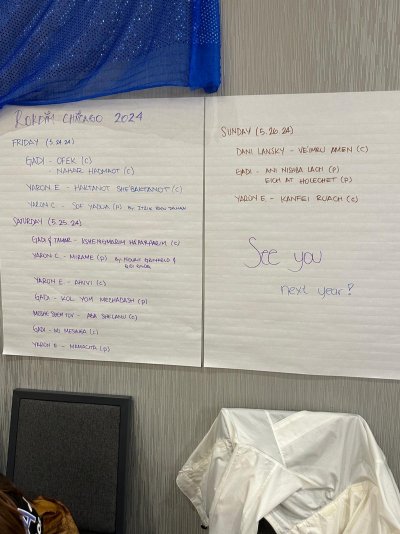 ROKDIM CHICAGO 2024
FRIDAY (5.24.24)
GADI - OFEK (C)
- NAHAR HADMAOT (C)
YARON E - HAKTANOT SHEBAKTANOT (C)
YARON C - SOF YADUA (P) BY ITZIK BEN DAHAN
SATURDAY (5.25.24)
GADI & TAMAR - KSHENIGMARIM HAPARPARIM (C)
YARON C. - MIRAME (P) BY
YARON E. - AHUVI (C)
GADI - KOL YOM MECHADASH (P)
MOSHE SHEM TOV - ABA SHELANU (C)
GADI - (C)
YARON E - (P)
SUNDAY (5.26.24)
DANI LANSKY - VE'IMRU AMEN (C)
GADI - ANI NISHBA LACH (P)
EICH AT HOLECHET (P)
YARON E. - KANFEI RUACH (C)
See you
next year!